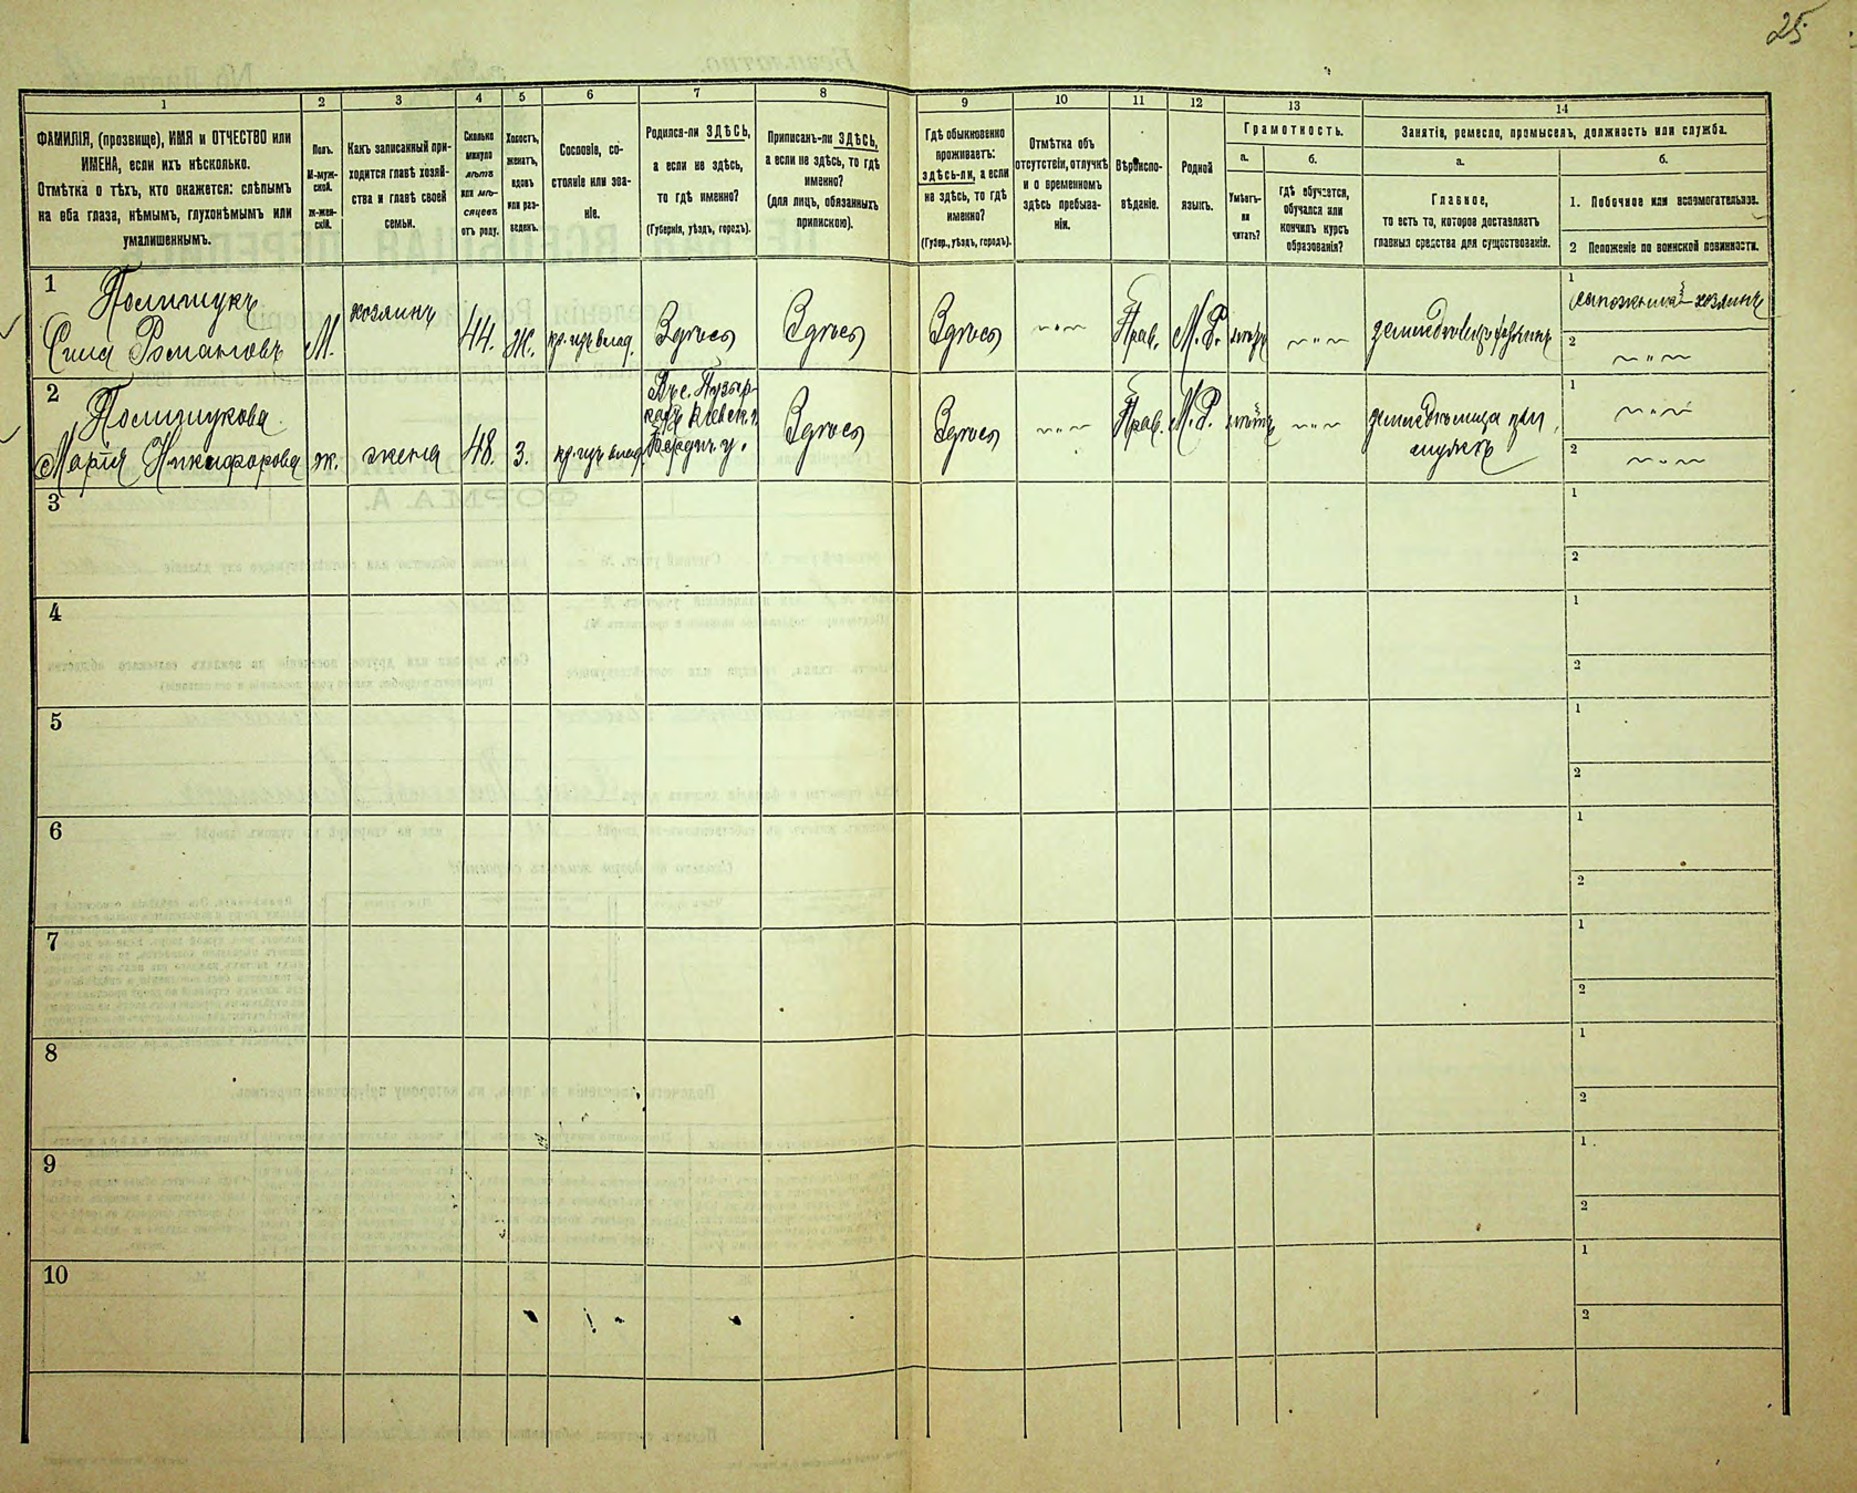 25
1
2
3
4
5
6
7
8
9
10
11
12
13
14
ФАМИЛІЯ, (прозвище), ИМЯ и ОТЧЕСТВО или
ИМЕНА, если ихъ нѣсколько.
Отмѣтка о тѣхъ, кто окажется: слѣпымъ
на оба глаза, нѣмымъ, глухонѣмымъ или
умалишеннымъ.
Полъ.
М-муж-
ской.
Ж-жен-
скій.
Какъ записанный при-
ходится главѣ хозяй-
ства и главѣ своей
семьи.
Сколько
минуло
лѣтъ
или мѣ-
сяцевъ
отъ роду.
Холостъ,
женатъ,
вдовъ
или раз-
веденъ.
Сословіе, со-
стояніе или зва-
ніе.
Родился-ли ЗДѢСЬ,
а если не здѣсь,
то гдѣ именно?
(Губернія, уѣздъ, городъ).
Приписанъ-ли ЗДѢСЬ,
а если не здѣсь, то гдѣ
именно?
(для лицъ, обязанныхъ
припискою).
Гдѣ обыкновенно
проживаетъ:
здѣсь-ли, а если
не здѣсь, то гдѣ
именно?
(Губер., уѣздъ, городъ).
Отмѣтка объ
отсутствіи, отлучкѣ
и о временномъ
здѣсь пребыва-
ніи.
Вѣроиспо-
вѣданіе.
Родной
языкъ.
Грамотность.
а.
б.
Умѣетъ-
ли
читать?
гдѣ обучается,
обучался или
кончилъ курсъ
образованія?
Занятія, ремесло, промыселъ, должность или служба.
а.
б.
Главное,
то есть то, которое доставляетъ
главныя средства для существованія.
1. Побочное или вспомогательное.
2 Положеніе по воинской повинности.
1
Полищукъ
Сила Романовъ
М.
хозяинъ
44.
ж.
кр. изъ влад.
Здѣсь
Здѣсь
Здѣсь
Прав.
М. Р.
нѣтъ
1
хозяинъ
2
2
Полищукова
Марія Никифорова
ж.
жена
48.
З.
кр. изъ влад.
Въ с. Пузыр-
кахъ Кіевск. г.
Бердич. у.
Здѣсь
Здѣсь
Прав.
М. Р.
нѣтъ
при
мужѣ
1
2
3
1
2
4
1
2
5
1
2
6
1
2
7
1
2
8
1
2
9
1
2
10
1
2